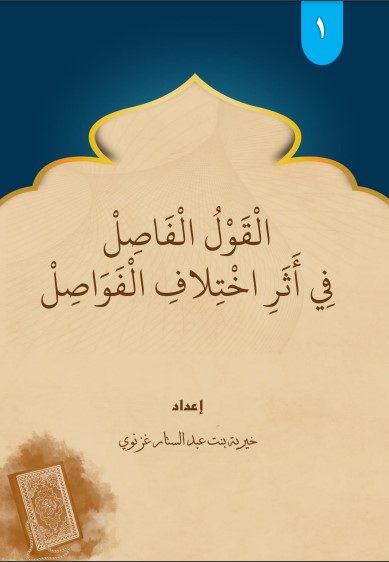 ١
الْقَوْلُ الْفَاصِلْ
فِي أَثَرِ اخْتِلافِ الْفَوَاصِلْ
إعداد
خيرية بنت عبد الستار غزنوي